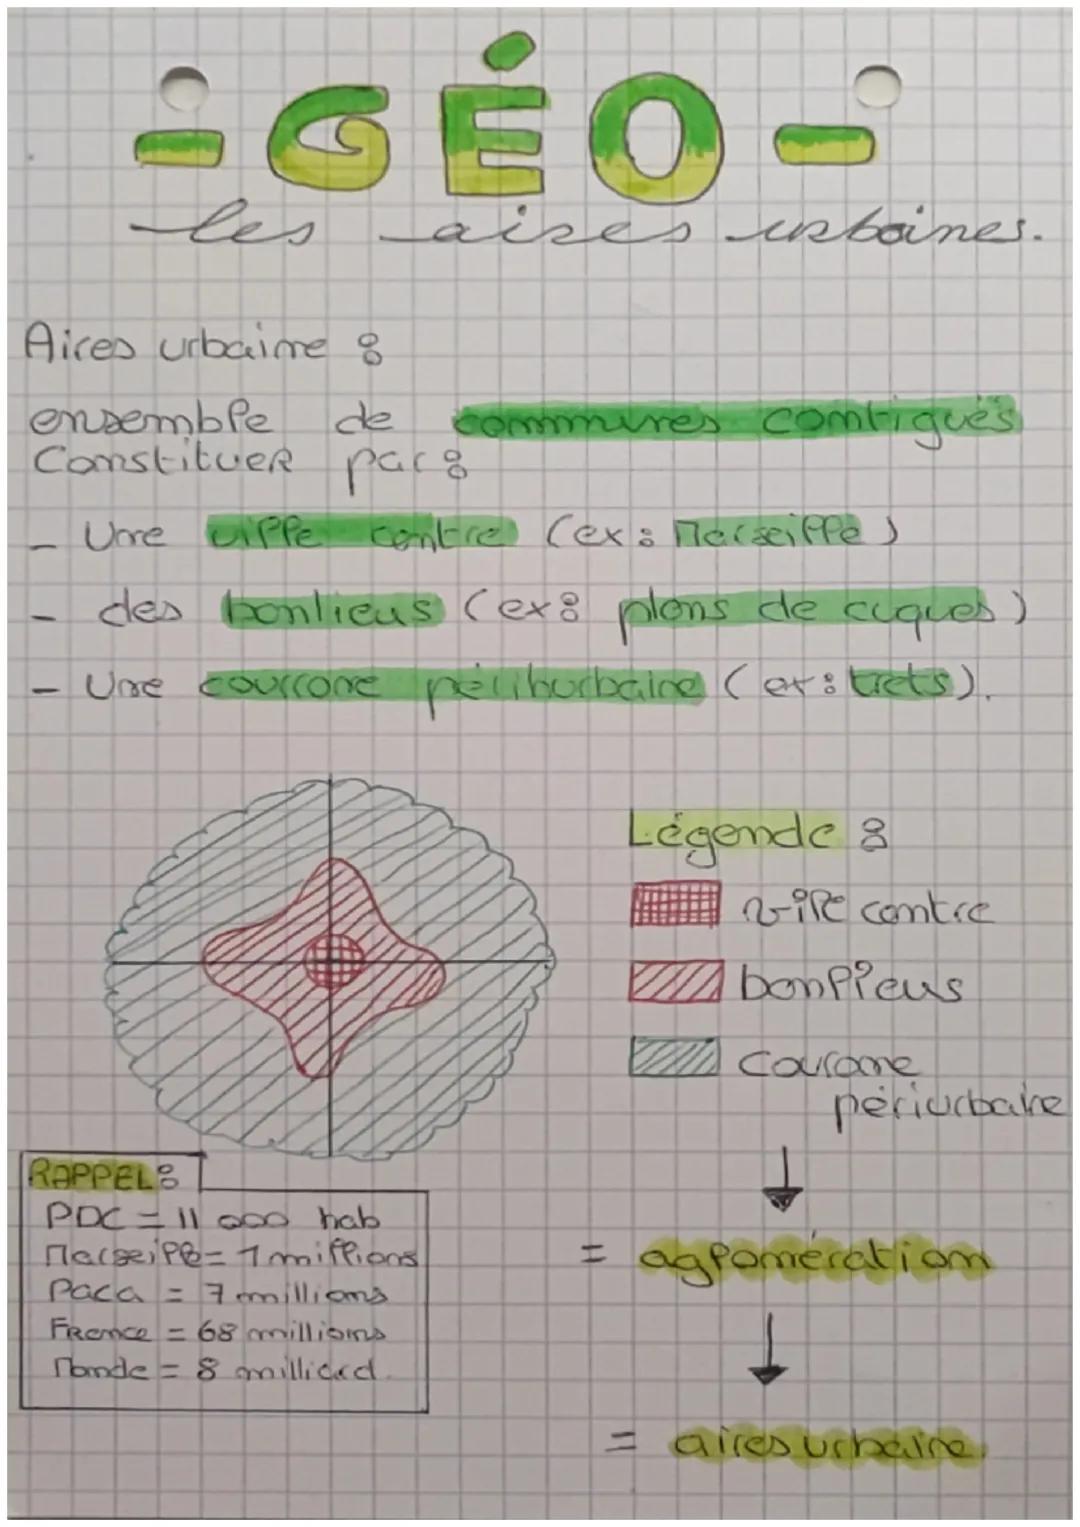 - GÉO -
les aires urbaines.
Aires urbaine :
ensemble de communes contiguës
Constituer par :
- Une ville centre (ex : Marseille)
- des banlieus (ex : plans de cuques)
- Une courrone périhurbaine (ex : trets).
Légende :
ville centre
banlieus
Courone
périurbaine
RAPPEL :
PDC = 11 000 hab
Marseille = 1 millions
Paca = 7 millions
France = 68 millions
Monde = 8 milliard.
= agglomération
= aires urbaine.